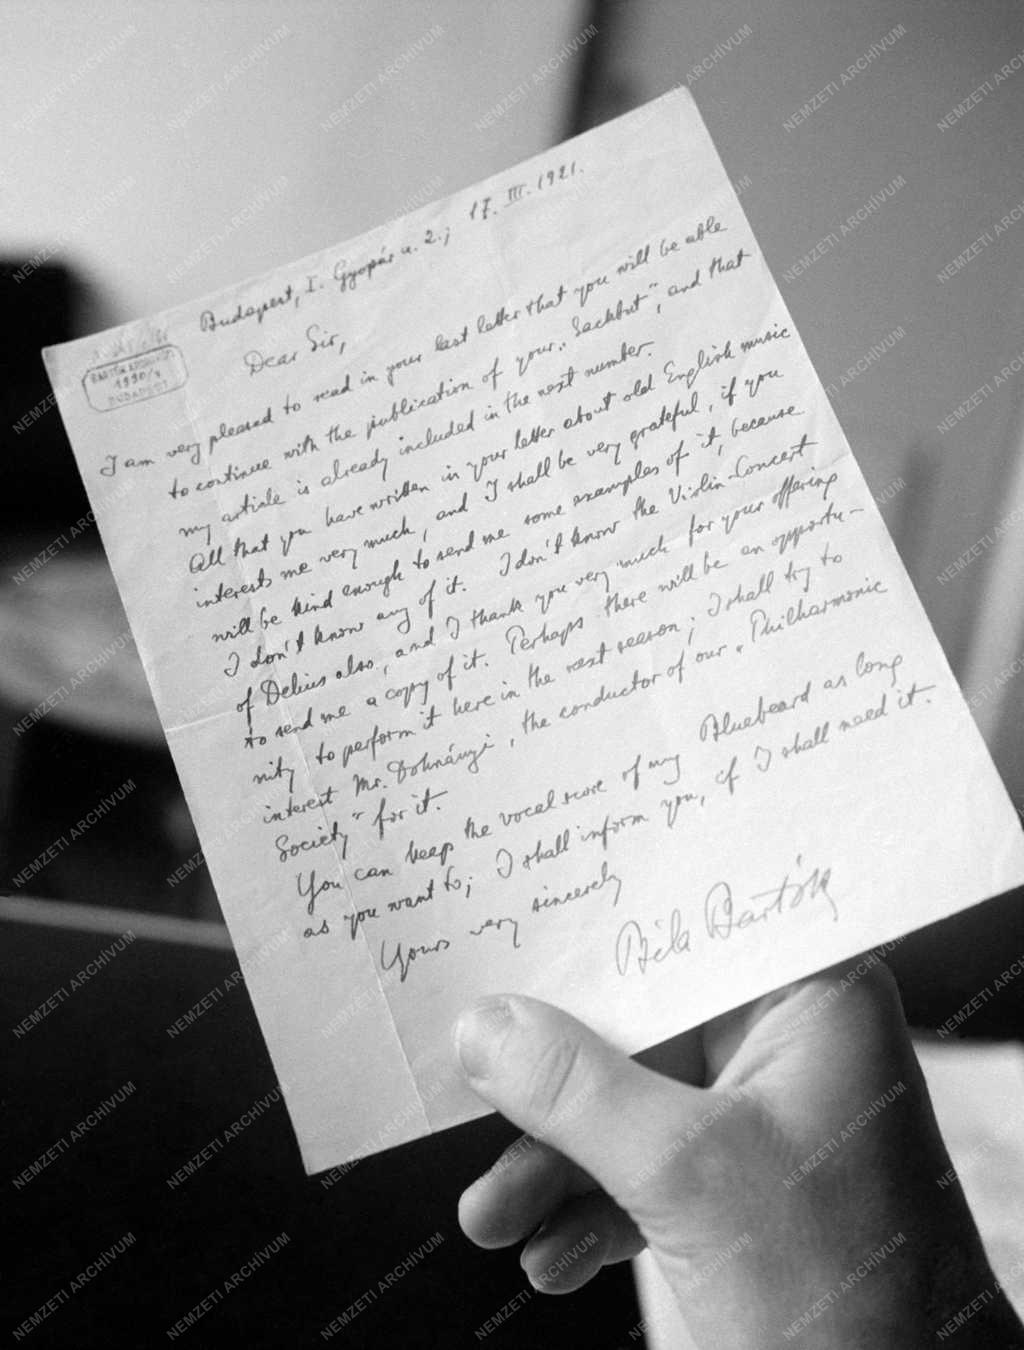 Budapest, I. Gyopár u. 2.; 17. III. 1921.
BARTÓK ARCHÍVUM
1990/4
BUDAPEST
Dear Sir,
I am very pleased to read in your last letter that you will be able
to continue with the publication of your „Sackbut", and that
my article is already included in the next number.
All that you have written in your letter about old English music
interests me very much, and I shall be very grateful, if you
will be kind enough to send me some examples of it, because
I don't know any of it. I don't know the Violin-Concert
of Delius also, and I thank you very much for your offering
to send me a copy of it. Perhaps there will be an opportu-
nity to perform it here in the next season; I shall try to
interest Mr. Dohnányi, the conductor of our „Philharmonic
Society" for it.
You can keep the vocal score of my Bluebeard as long
as you want to; I shall inform you, if I shall need it.
Yours very sincerely
Béla Bartók
NEMZETI ARCHÍVUM